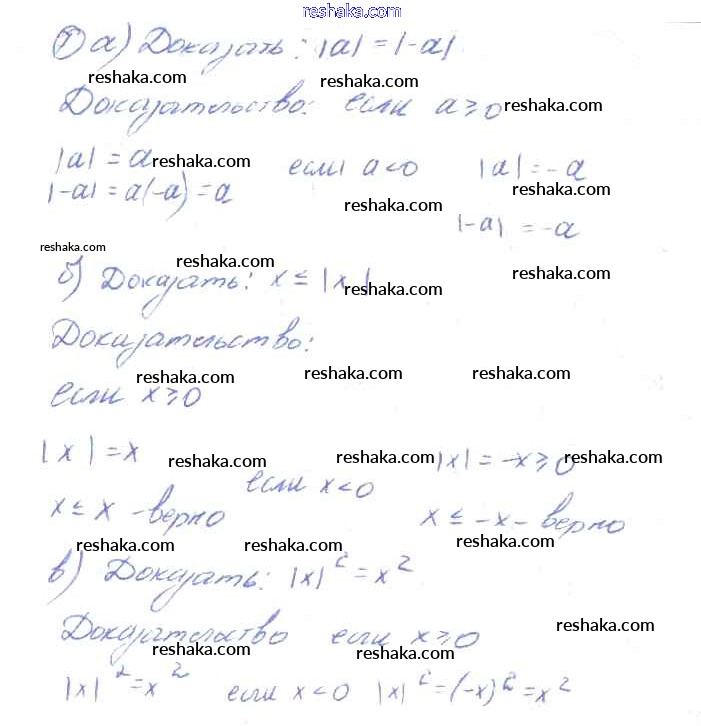 reshaka.com
1) а) Доказать: |a| = |-a|
reshaka.com reshaka.com
Доказательство: если a ≥ 0 reshaka.com
|a| = a reshaka.com если a < 0 |a| = -a
|-a| = a(-a) = a reshaka.com reshaka.com
|-a| = -a
reshaka.com reshaka.com
б) Доказать: x ≤ |x| reshaka.com reshaka.com
Доказательство:
reshaka.com reshaka.com reshaka.com
если x ≥ 0
|x| = x reshaka.com reshaka.com |x| = -x ≥ 0 reshaka.com
если x < 0
x ≤ x - верно x ≤ -x - верно
reshaka.com reshaka.com reshaka.com
в) Доказать: |x|² = x²
Доказательство если x ≥ 0 reshaka.com
reshaka.com reshaka.com
|x|² = x² если x < 0 |x|² = (-x)² = x²
reshaka.com reshaka.com reshaka.com